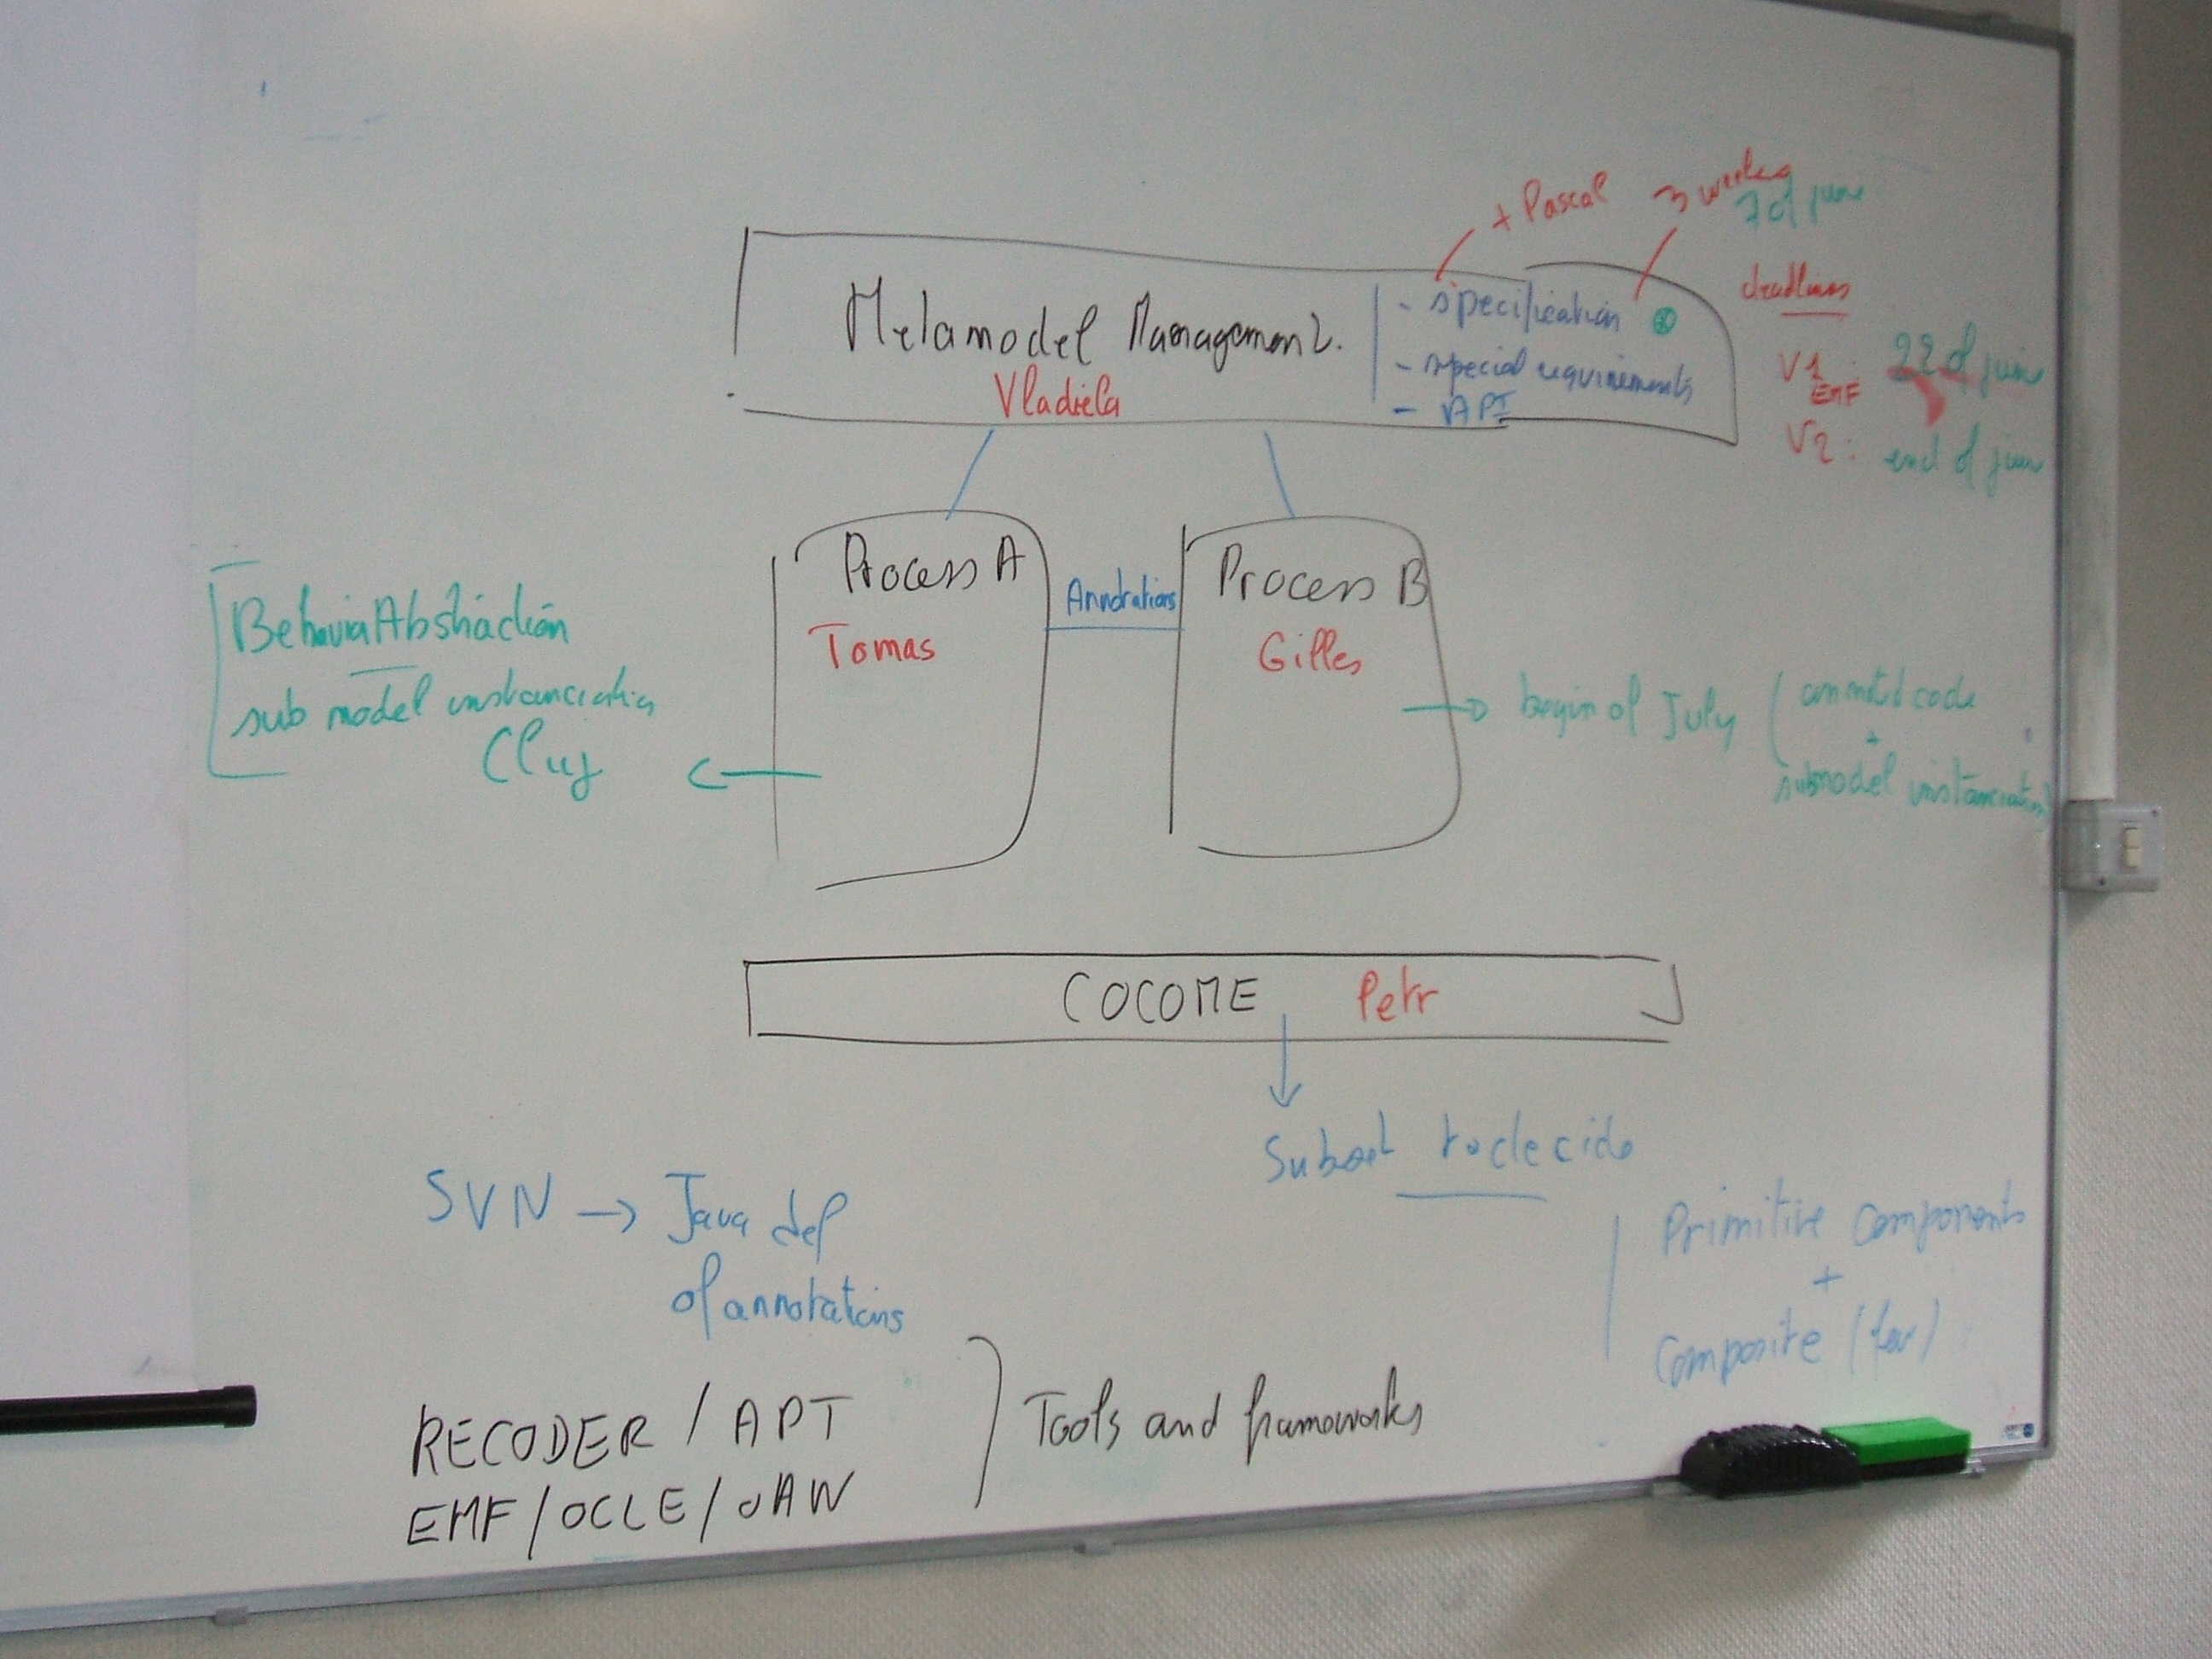 + Pascal
3 weeks
7 of june
Metamodel Management.
Vladiela
- specification
- special requirements
- API
deadlines
V1 : 22 of june
EMF
V2 : end of june
Process A
Tomas
Annotations
Process B
Gilles
Behavior Abstraction
sub model instanciation
Cluj
begin of July
annotated code
+
submodel instanciation
COCOME Petr
Subset to decide
SVN → Java def
of annotations
Primitive Components
+
Composite (few)
RECODER / APT
EMF / OCLE / oAW
Tools and frameworks